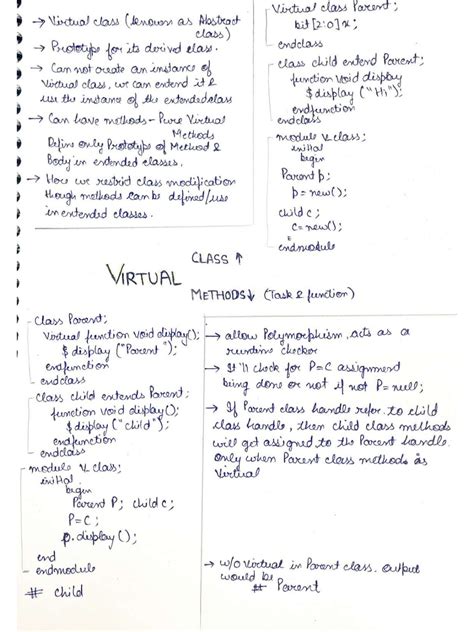 → Virtual class (known as Abstract
class)
→ Prototype for its derived class.
→ Can not create an instance of
Virtual class, we can extend it &
use the instance of the extended class
→ Can have methods - Pure Virtual
Methods
Define only Prototype of Method &
Body in extended classes.
→ How we restrict class modification
though methods can be defined/use
in extended classes.
Virtual class Parent;
bit [2:0] x;
endclass
class child extend Parent;
function void display
$display ("Hi");
endfunction
endclass
module V_class;
initial
begin
Parent p;
p = new();
child c;
c = new();
endmodule
CLASS ↑
VIRTUAL
METHODS ↓ (Task & function)
Class Parent;
Virtual function void display();
$display ("Parent");
endfunction
endclass
Class child extends Parent;
function void display();
$display ("child");
endfunction
endclass
module V_class;
initial
begin
Parent P; child c;
P = C;
p.display();
end
endmodule
# child
→ allow Polymorphism, acts as a
runtime checker
→ It'll check for P=C assignment
being done or not if not P=null;
→ If Parent class handle refer to child
class handle, then child class methods
will get assigned to the Parent handle
only when Parent class methods as
Virtual
→ w/o Virtual in Parent class. output
would be
# Parent